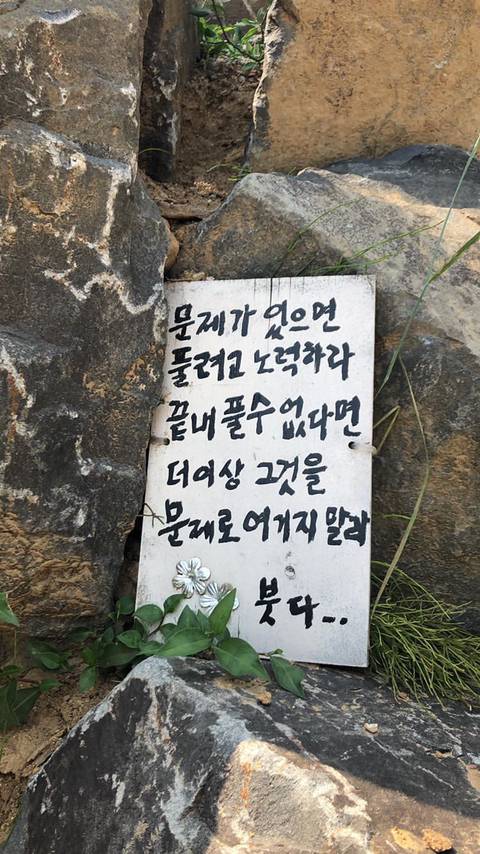 문제가 있으면
풀려고 노력하라
끝내 풀수 없다면
더이상 그것을
문제로 여기지 말라
붓다...